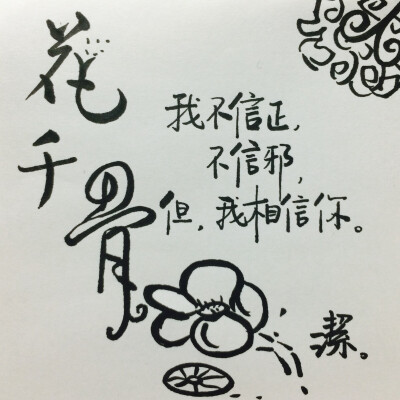 花千骨
我不信正，
不信邪，
但，我相信你。
潔。